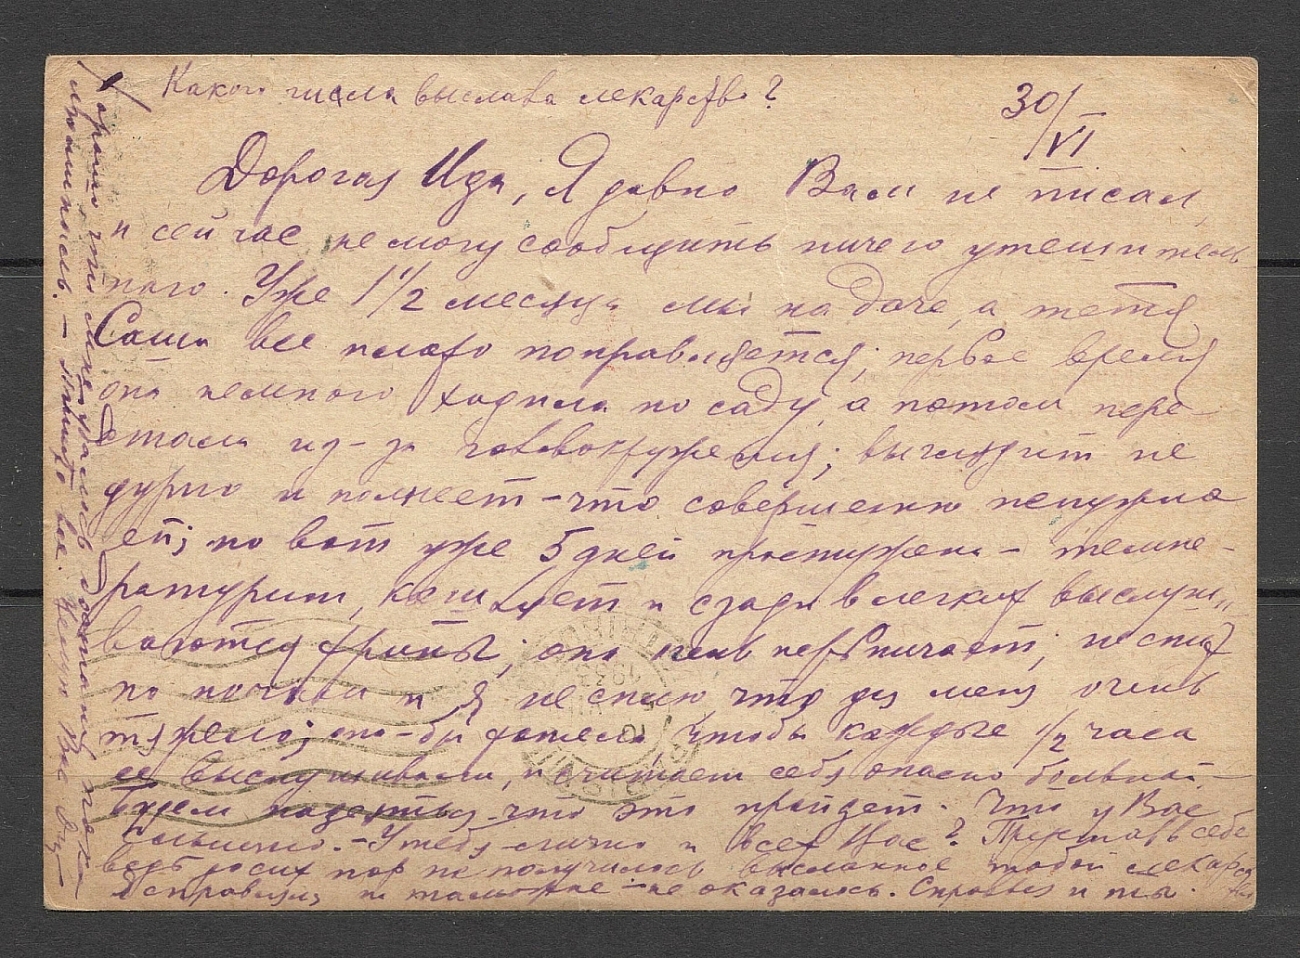 Какого числа выслала лекарство?
30/VI
Дорогая Ида, Я давно Вам не писал,
и сейчас не могу сообщить ничего утешитель
ного. Уже 1 1/2 месяца мы на даче, а тетя
Саша все плохо поправляется; первое время
она немного ходила по саду, а потом пере-
стала из-за головокружения; выглядит не
дурно и полнеет - что совершенно не нужно
ей; но вот уже 5 дней простужена - темпе-
ратурит, кашляет и сзади в легких выслуши-
ваются хрипы; она очень нервничает, не спит
по ночам и я не сплю, что для меня очень
тяжело; она бы хотела чтобы каждые 1/2 часа
ее выслушивали, и считает себя опасно больной -
будем надеяться что это пройдет. Что у Вас
слышно. - У тебя лично и всех Вас? Представь себе
ведь до сих пор не получилось высланное тобой лекарство
справился на таможне - не оказалось. Справься и ты
Хорошо что мне удалось достать пока
- пишите все. Целую Вас